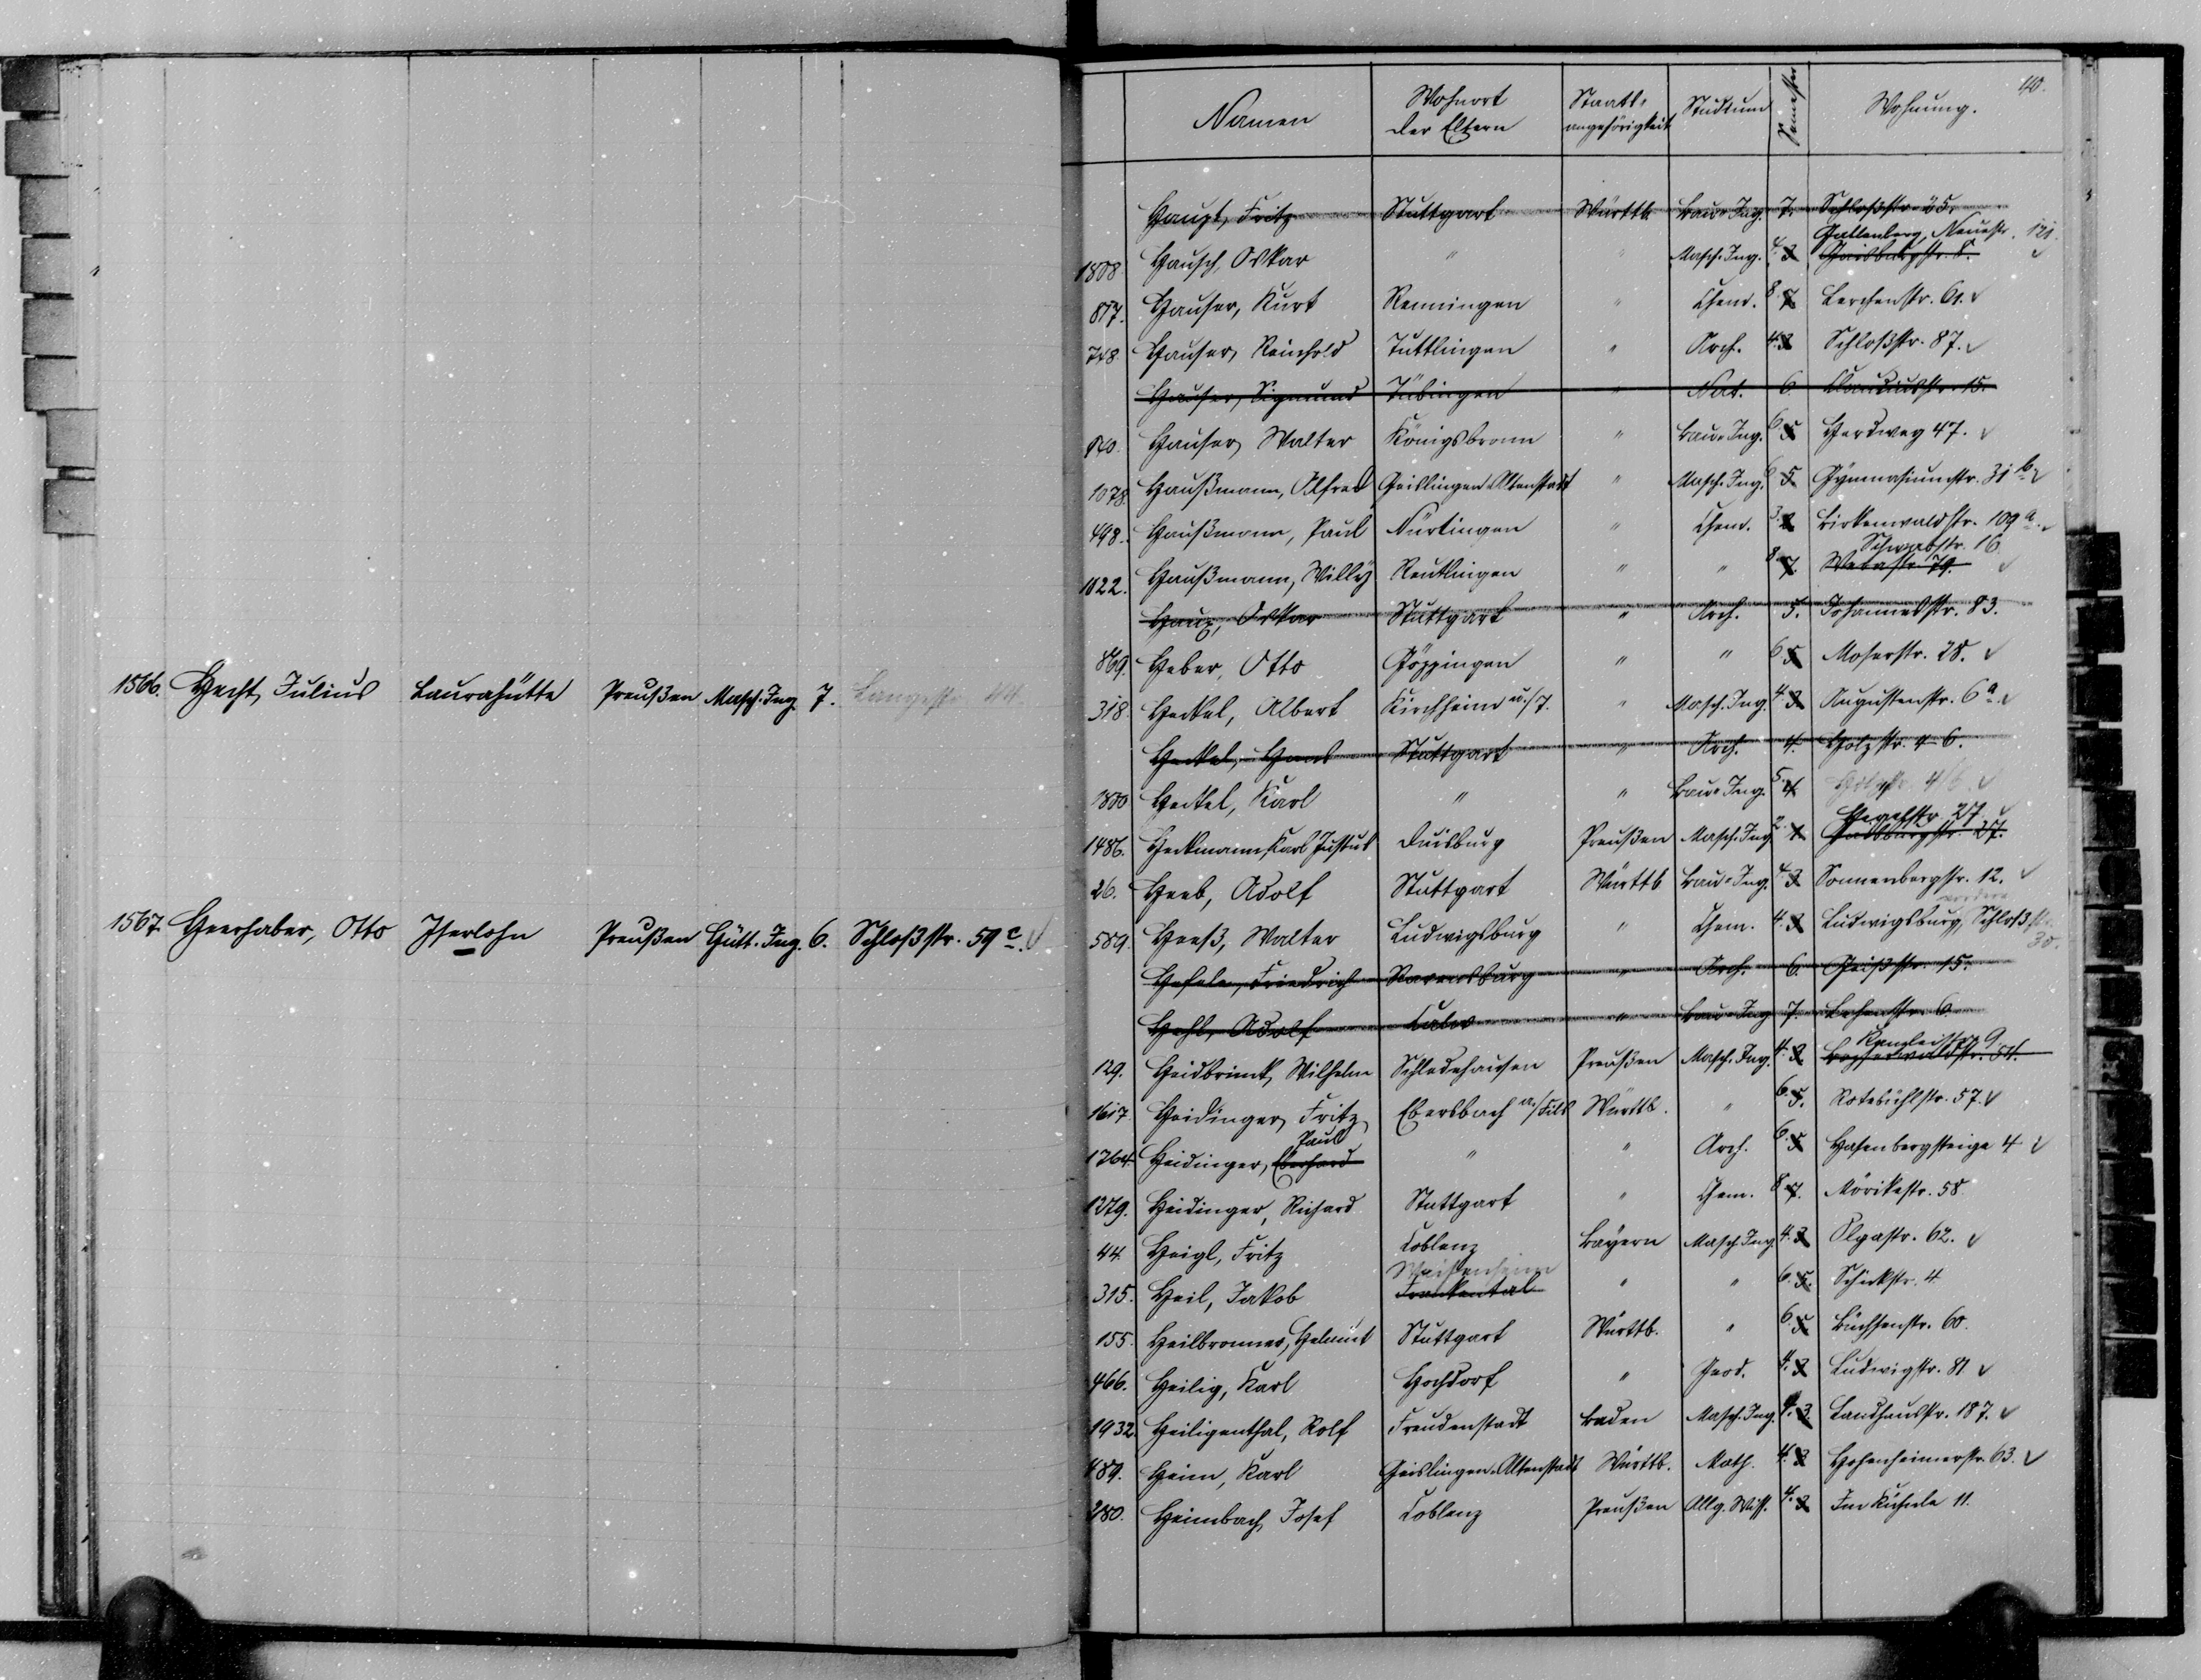 1566. Hecht, Julius Laurahütte Preußen Masch. Ing. 7. Langestr. 44
1567. Heerhaber, Otto Iserlohn Preußen Hütt. Ing. 6. Schloßstr. 59 c.
40.
Namen Wohnort der Eltern Staats-angehörigkeit Studium Semester Wohnung.
Haupt, Fritz Stuttgart Württb. Bau-Ing. 7. Schloßstr.
Gablenberg, Neuestr. 121.
1808. Hausch, Oskar " " Masch. Ing. 4. 3. Gaisburgstr. 8.
817. Hauser, Kurt Renningen " Chem. 8. 7. Lerchenstr. 61.
748. Hauser, Reinhold Tuttlingen " Arch. 4. 3. Schloßstr. 87.
Hauser, Sigmund Tübingen " Nat. 6. 15.
840. Hauser, Walter Königsbronn " Bau-Ing. 6. 5. Herdweg 47.
1078. Haußmann, Alfred Geislingen-Altenstadt " Masch. Ing. 6. 5. Gymnasiumstr. 31 b.
498. Haußmann, Paul Nürtingen " Chem. 3. 2. Birkenwaldstr. 109 a.
Schwabstr. 16.
1622. Haußmann, Willy Reutlingen " " 8. 7. 79.
Haux, Oskar Stuttgart " Arch. 5. Johannesstr. 83.
869. Heber, Otto Göppingen " " 6. 5. Moserstr. 28.
318. Heckel, Albert Kirchheim u./T. " Masch. Ing. 4. 3. Augustenstr. 6 a.
Heckel, Hans Stuttgart " Arch. 4. Holzstr. 4-6.
1800. Heckel, Karl " " Bau-Ing. 5. 4. Holzstr. 4/6.
Hegelstr. 27.
1486. Heckmann, Karl Justus Duisburg Preußen Masch. Ing. 2. 1. Gaisburgstr. 27.
26. Heeb, Adolf Stuttgart Württb. Bau-Ing. 4. 3. Sonnenbergstr. 12.
vordere
589. Heeß, Walter Ludwigsburg " Chem. 4. 3. Ludwigsburg, Schloßstr.
30.
Hefele, Friedrich Ravensburg " Arch. 6. Geißstr. 15.
Hehl, Adolf Calw " Bau-Ing. 7. Lehenstr. 6.
Kanzleistr. 9
129. Heidbrink, Wilhelm Schledehausen Preußen Masch. Ing. 4. 3. Bopserwaldstr. 54.
1617. Heidinger, Fritz Ebersbach a/Fils Württb. " 6. 5. Rotebühlstr. 57.
Paul
1764. Heidinger, Eberhard " " Arch. 6. 5. Hasenbergsteige 4
1279. Heidinger, Richard Stuttgart " Chem. 8. 7. Mörikestr. 58.
44. Heigl, Fritz Coblenz Bayern Masch. Ing. 4. 3. Olgastr. 62.
Weisenheim
315. Heil, Jakob Frankental " " 6. 5. Schickstr. 4
155. Heilbronner, Helmut Stuttgart Württb. " 6. 5. Büchsenstr. 60.
466. Heilig, Karl Hochdorf " Geod. 4. 3. Ludwigstr. 81
1932. Heiligenthal, Rolf Freudenstadt Baden Masch. Ing. 4. 3. Landhausstr. 187.
489. Heim, Karl Geislingen-Altenstadt Württb. Math. 4. 3. Hohenheimerstr. 63.
280. Heimbach, Josef Coblenz Preußen Allg. Wiss. 4. 3. Im Kühnle 11.